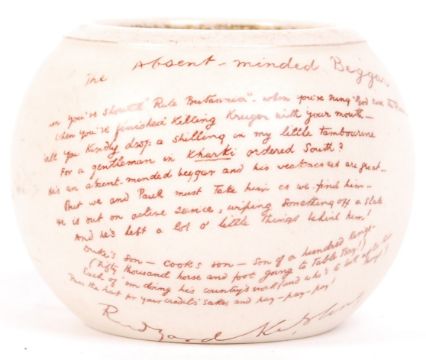 The Absent-minded Beggar
When you've shouted "Rule Britannia" – when you've sung "God save the
When you've finished killing Kruger with your mouth –
Will you kindly drop a shilling in my little tambourine
For a gentleman in Kharki ordered South?
He's an absent-minded beggar and his weaknesses are great –
But we and Paul must take him as we find him –
He is out on active service, wiping something off a slate
And he's left a lot o' little things behind him!
Duke's son – cook's son – son of a hundred kings –
(Fifty thousand horse and foot going to Table Bay!)
Each of 'em doing his country's work (and who's to look after the things?)
Pass the hat for your credit's sake and pay – pay – pay!
Rudyard Kipling